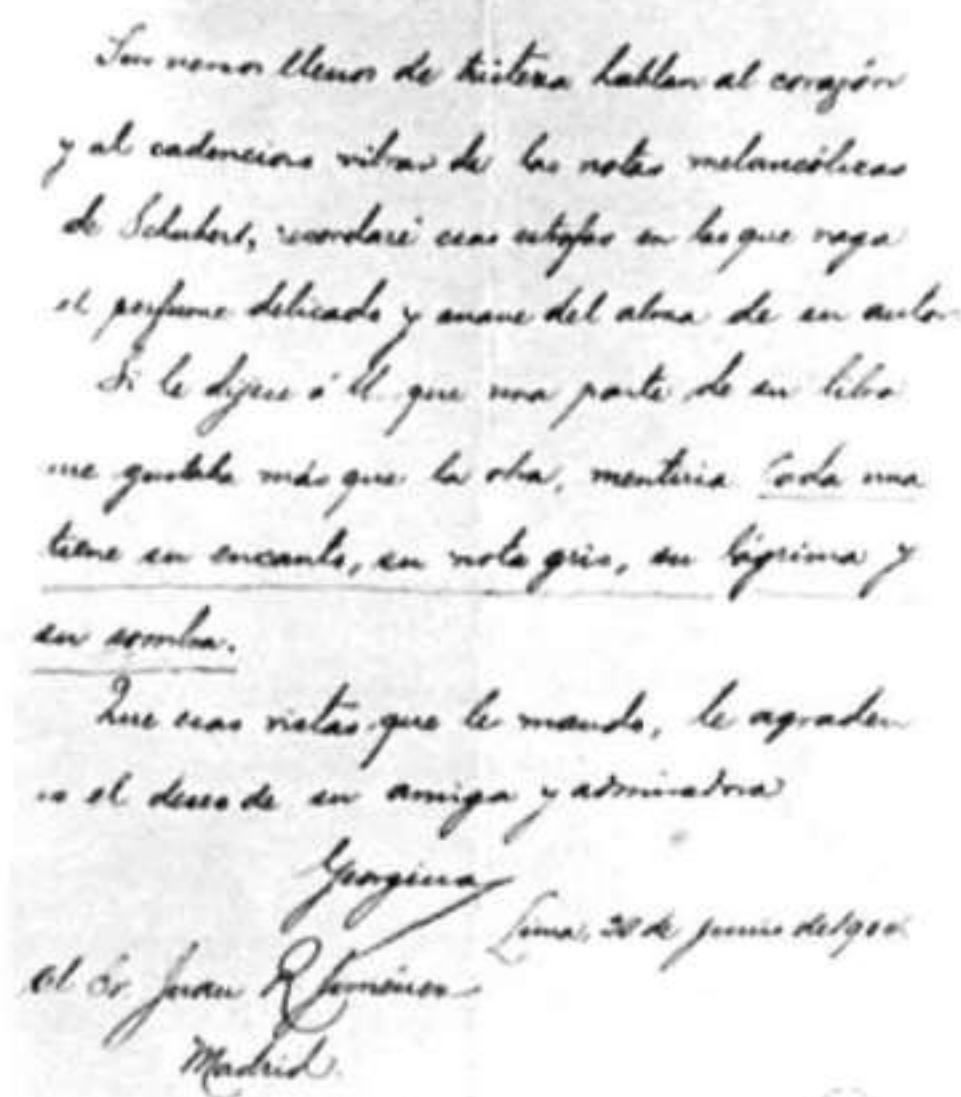 Sus versos llenos de tristeza hablan al corazón
y al cadencioso vibrar de las notas melancólicas
de Schubert, recordaré esas estrofas en las que vaga
el perfume delicado y suave del alma de su autor.
Si le dijese á U. que una parte de su libro
me gustaba más que la otra, mentiria. Cada una
tiene su encanto, su nota gris, su lágrima y
su sombra.
Que esas vistas que le mando, le agraden
es el deseo de su amiga y admiradora
Georgina
Lima, de Junio de
al Sr. Juan R. Jiménez
Madrid.